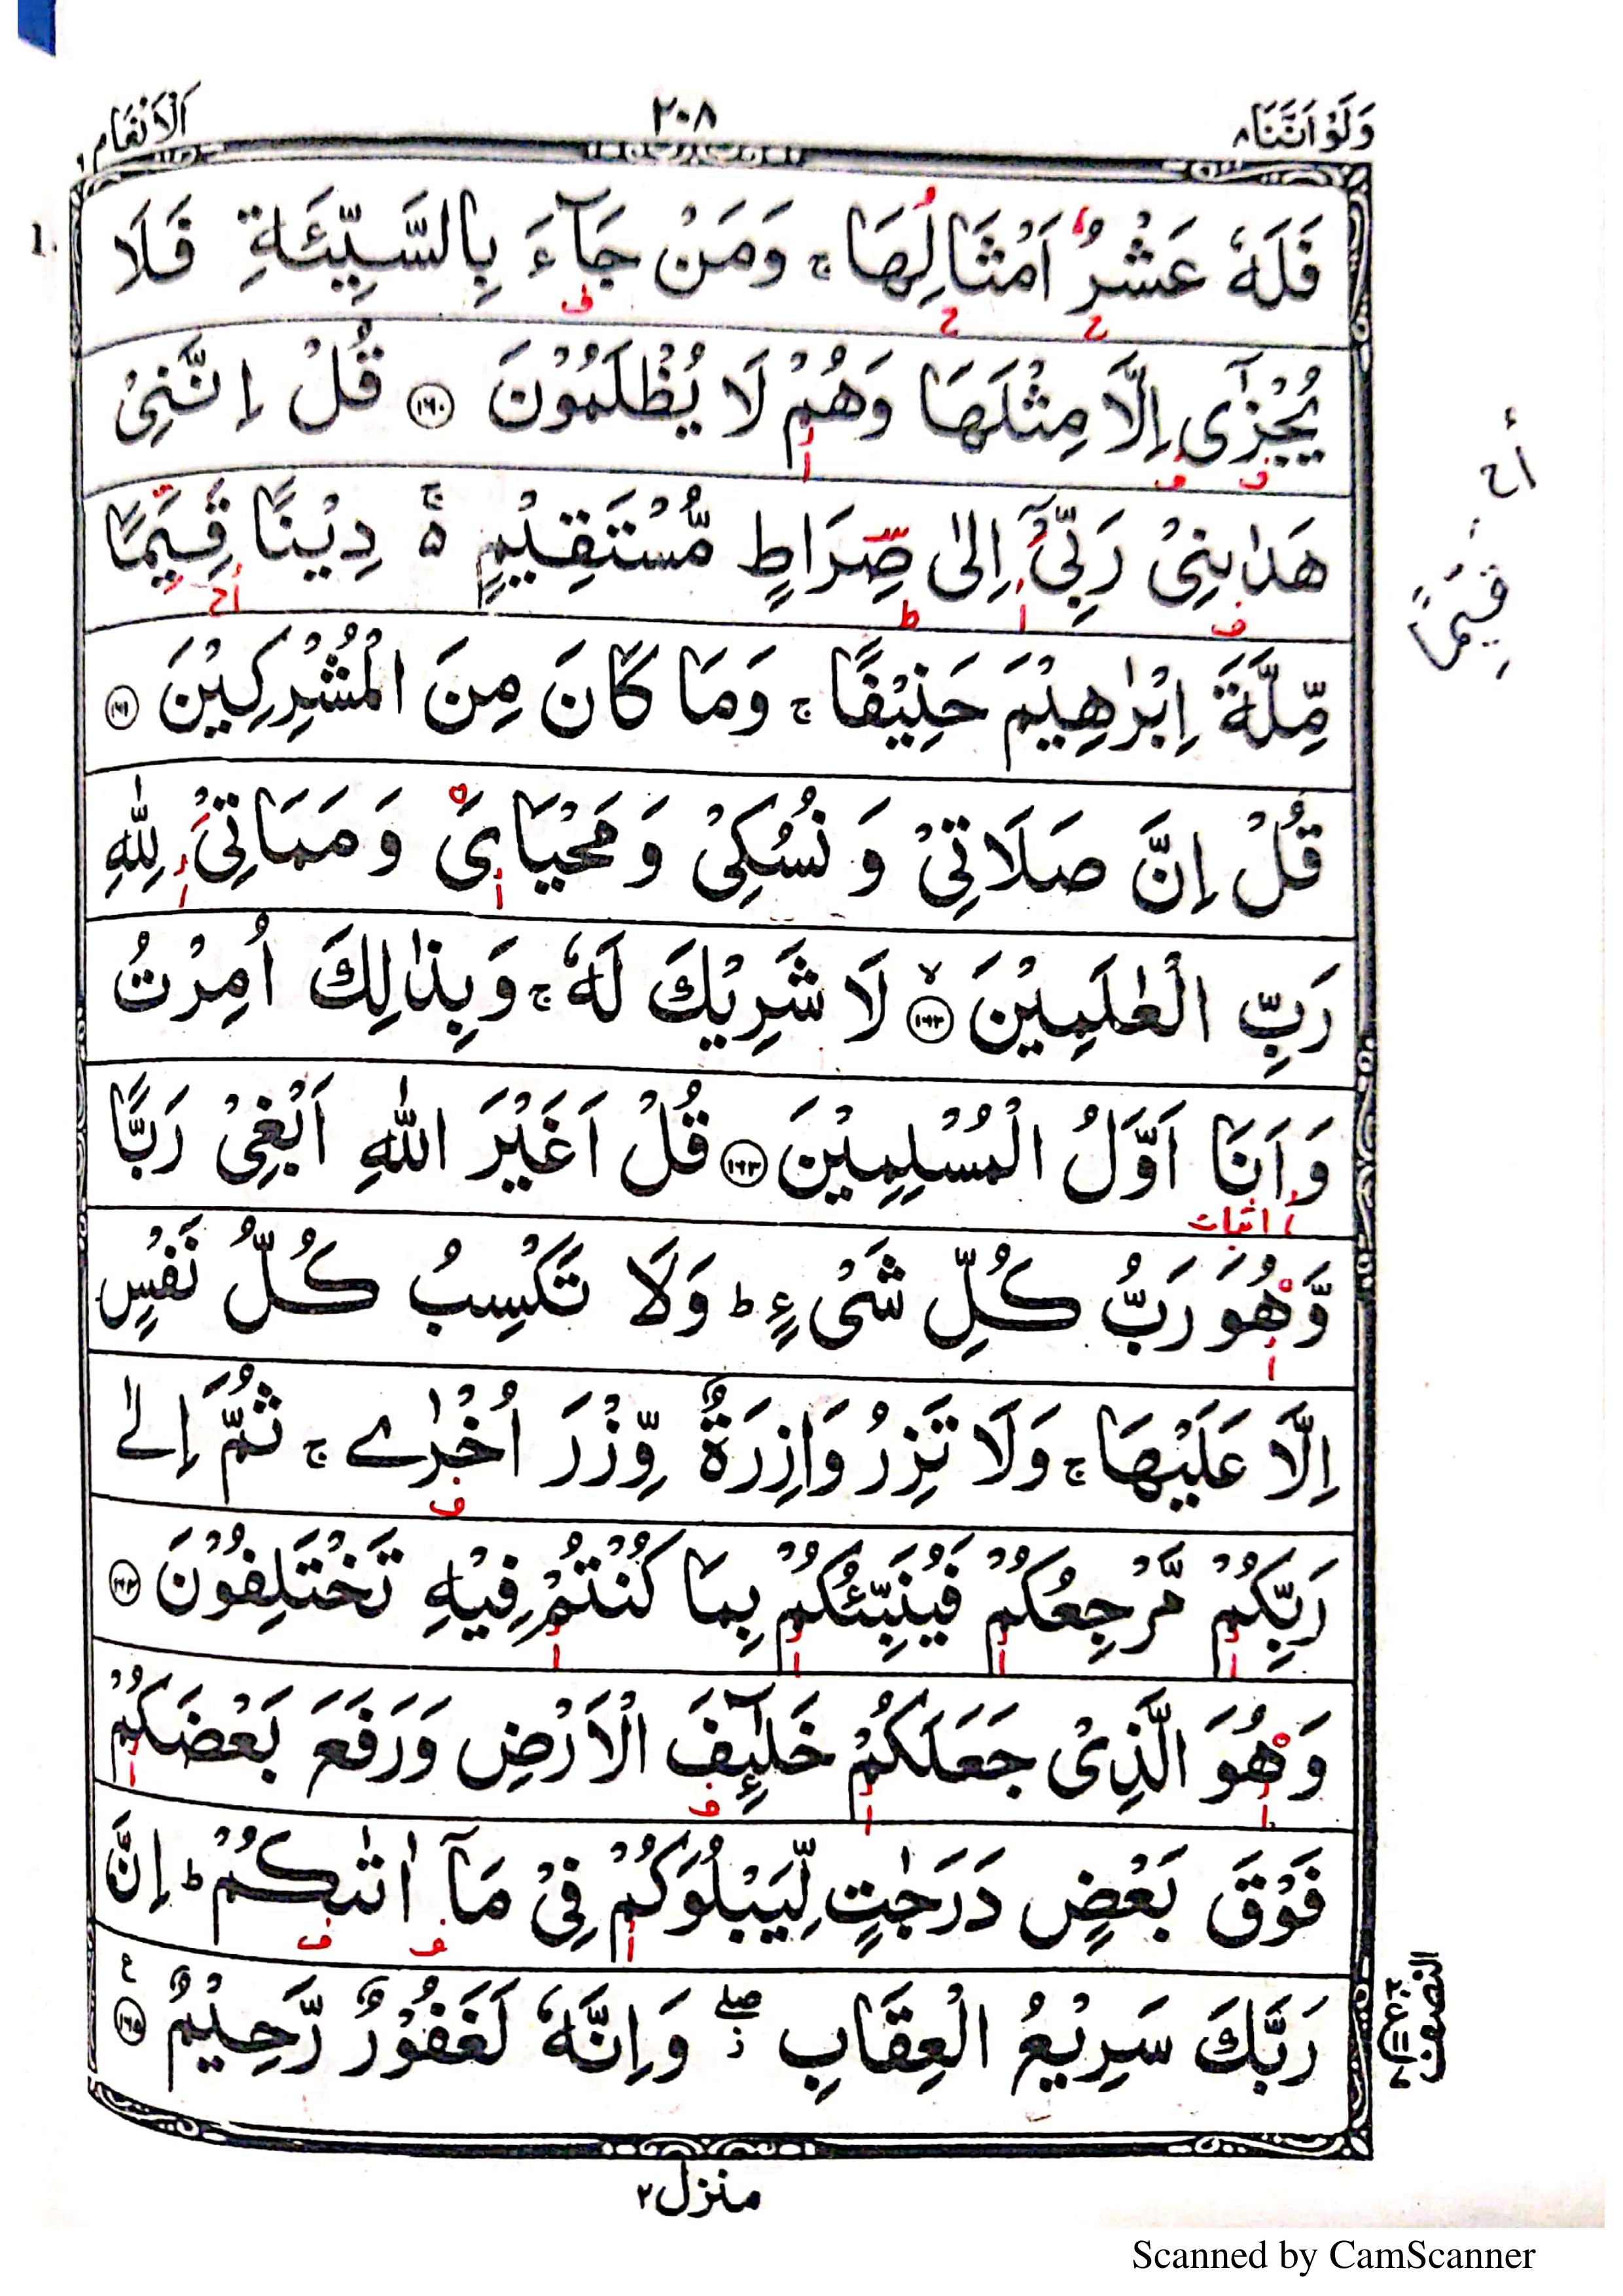 وَلَوْ اَنَّنَا ۸
۲۰۸
اَلْاَنْعَام ۶
1.
فَلَهٗ عَشْرُ اَمْثَالِهَا ۚ وَمَنْ جَآءَ بِالسَّيِّئَةِ فَلَا
يُجْزٰٓى اِلَّا مِثْلَهَا وَهُمْ لَا يُظْلَمُوْنَ ۝۱۶۰ قُلْ اِنَّنِيْ
هَدٰىنِيْ رَبِّيْٓ اِلٰى صِرَاطٍ مُّسْتَقِيْمٍ ۚ۬ دِيْنًا قِيَمًا
مِّلَّةَ اِبْرٰهِيْمَ حَنِيْفًا ۚ وَمَا كَانَ مِنَ الْمُشْرِكِيْنَ ۝۱۶۱
قُلْ اِنَّ صَلَاتِيْ وَ نُسُكِيْ وَ مَحْيَايَ وَ مَمَاتِيْ لِلّٰهِ
رَبِّ الْعٰلَمِيْنَ ۝۱۶۲ۙ لَا شَرِيْكَ لَهٗ ۚ وَبِذٰلِكَ اُمِرْتُ
وَاَنَا اَوَّلُ الْمُسْلِمِيْنَ ۝۱۶۳ قُلْ اَغَيْرَ اللّٰهِ اَبْغِيْ رَبًّا
اثبات
وَّهُوَ رَبُّ كُلِّ شَيْءٍ ؕ وَلَا تَكْسِبُ كُلُّ نَفْسٍ
اِلَّا عَلَيْهَا ۚ وَلَا تَزِرُ وَازِرَةٌ وِّزْرَ اُخْرٰے ۚ ثُمَّ اِلٰے
رَبِّكُمْ مَّرْجِعُكُمْ فَيُنَبِّئُكُمْ بِمَا كُنْتُمْ فِيْهِ تَخْتَلِفُوْنَ ۝۱۶۴
وَهُوَ الَّذِيْ جَعَلَكُمْ خَلٰٓئِفَ الْاَرْضِ وَرَفَعَ بَعْضَكُمْ
فَوْقَ بَعْضٍ دَرَجٰتٍ لِّيَبْلُوَكُمْ فِيْ مَآ اٰتٰىكُمْ ؕ اِنَّ
رَبَّكَ سَرِيْعُ الْعِقَابِ ۖ٘ وَاِنَّهٗ لَغَفُوْرٌ رَّحِيْمٌ ۝۱۶۵
اُح
قِيَمًا
النصف
منزل ۲
Scanned by CamScanner